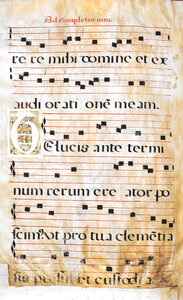 Ad Completorium.
re re mihi domine et ex
audi orati onē meam.
Te lucis ante termi
num rerum cre ator po
scimꝰ ut pro tua clemētia
sis presul et custodi a